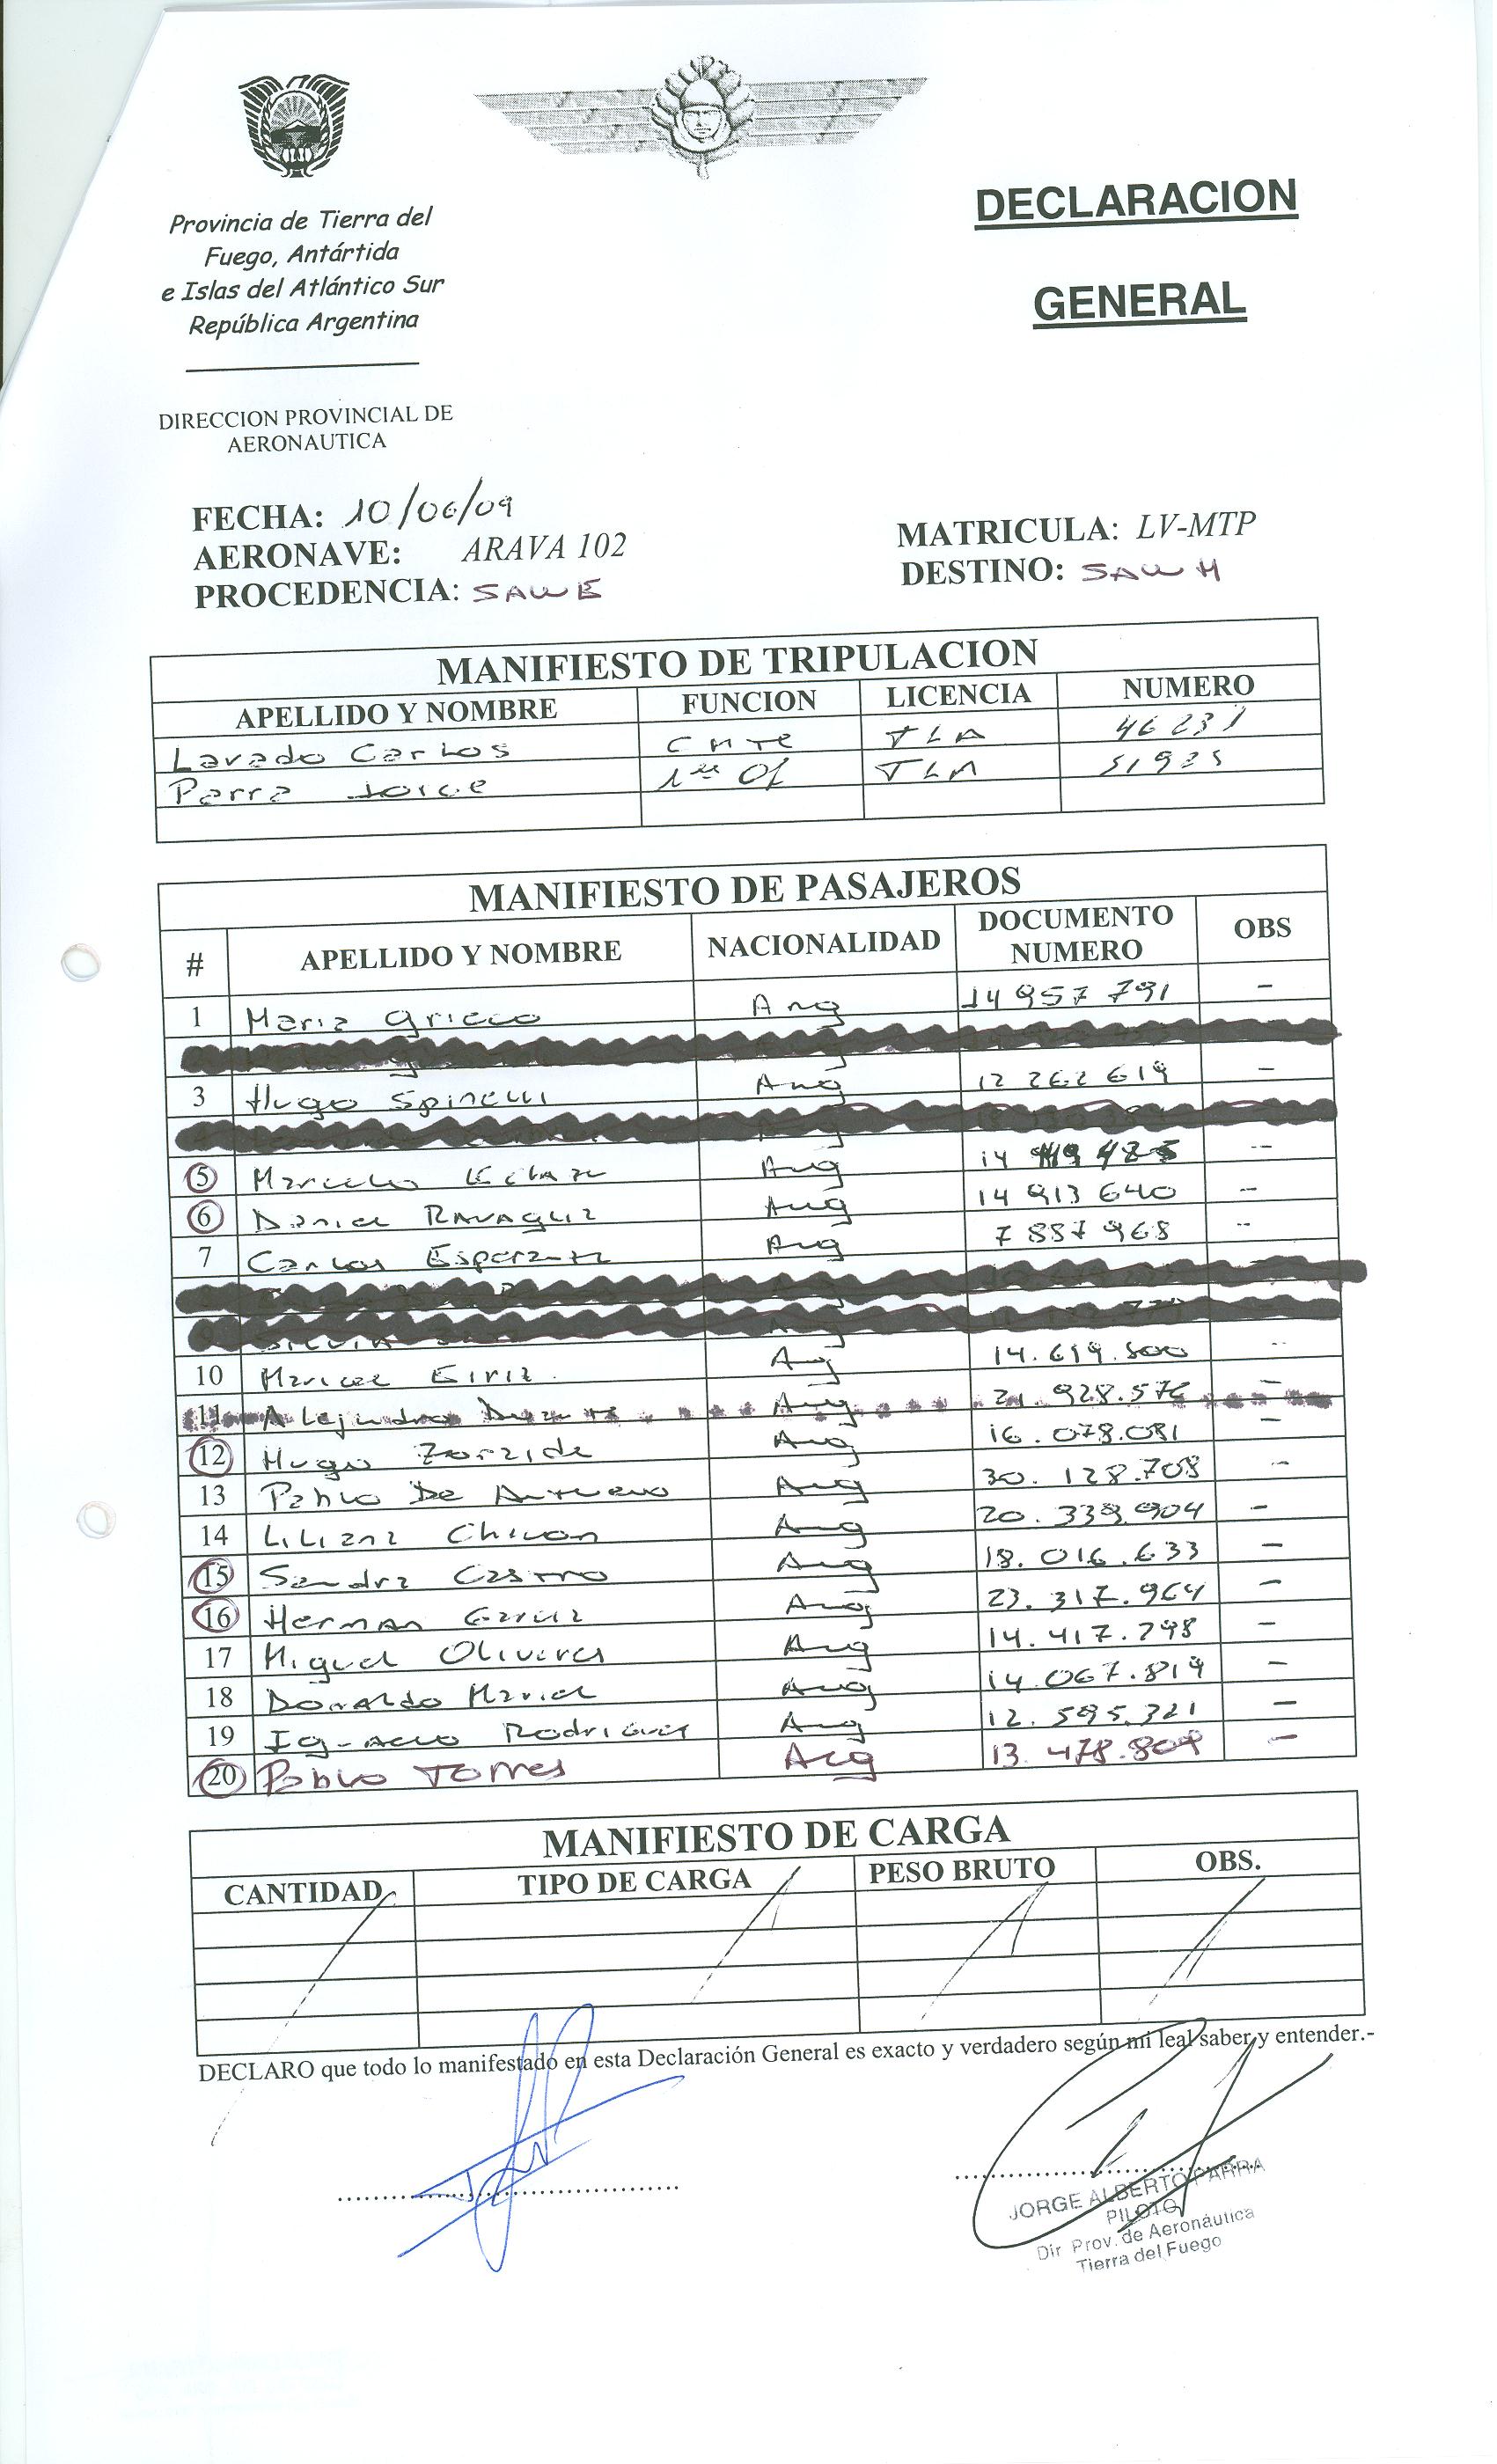 Provincia de Tierra del
Fuego, Antártida
e Islas del Atlántico Sur
República Argentina
DECLARACION
GENERAL
DIRECCION PROVINCIAL DE
AERONAUTICA
FECHA: 10/06/09
AERONAVE: ARAVA 102
MATRICULA: LV-MTP
PROCEDENCIA: SAWE
DESTINO: SAWH
MANIFIESTO DE TRIPULACION
APELLIDO Y NOMBRE FUNCION LICENCIA NUMERO
Lavado Carlos CMTE TLA 46231
Parra Jorge 1er Of TLA 51925
MANIFIESTO DE PASAJEROS
# APELLIDO Y NOMBRE NACIONALIDAD DOCUMENTO NUMERO OBS
1 Maria Grieco Arg 14 957 791 -
3 Hugo Spinelli Arg 12 262 619 -
5 Marcelo Arg 14 --
6 Daniel Arg 14 913 640 --
7 Carlos Arg 7 887 968 --
9
10 Maricel Eiriz Arg 14.619.500 --
11 Alejandro Arg 21.928.576 -
12 Hugo Arg 16.078.081 -
13 Pablo De Arg 30.128.708 --
14 Liliana Arg 20.339.904 -
15 Sandra Castro Arg 18.016.633 -
16 Hernan Garcia Arg 23.317.964 -
17 Miguel Olivares Arg 14.417.798 -
18 Donaldo Arg 14.067.819 -
19 Ignacio Rodriguez Arg 12.595.321 -
20 Pablo Torres Arg 13.478.809 -
MANIFIESTO DE CARGA
CANTIDAD TIPO DE CARGA PESO BRUTO OBS.
DECLARO que todo lo manifestado en esta Declaración General es exacto y verdadero según mi leal saber y entender.-
JORGE ALBERTO PARRA
PILOTO
Dir Prov. de Aeronáutica
Tierra del Fuego